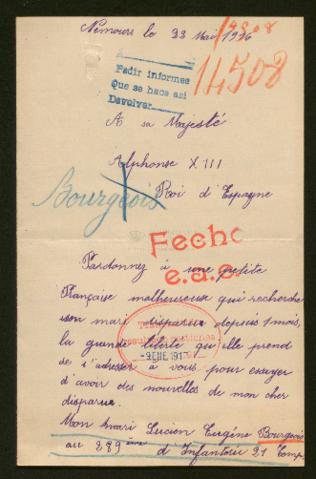 Nemours le 23 Mai 1916
14508
Pedir informes
Que se hace asi
Devolver
A sa Majesté
Alphonse XIII
Bourgeois
Roi d'Espagne
Fecho
e.a.c.
Pardonnez à une petite
Française malheureuse qui recherche
son mari disparu depuis 1 mois,
la grande liberté qu'elle prend
de s'adresser à vous pour essayer
d'avoir des nouvelles de mon cher
disparu.
-9 ENE 191
Mon mari Lucien Eugéne Bourgeois
au 289ème d'Infanterie 21 Comp